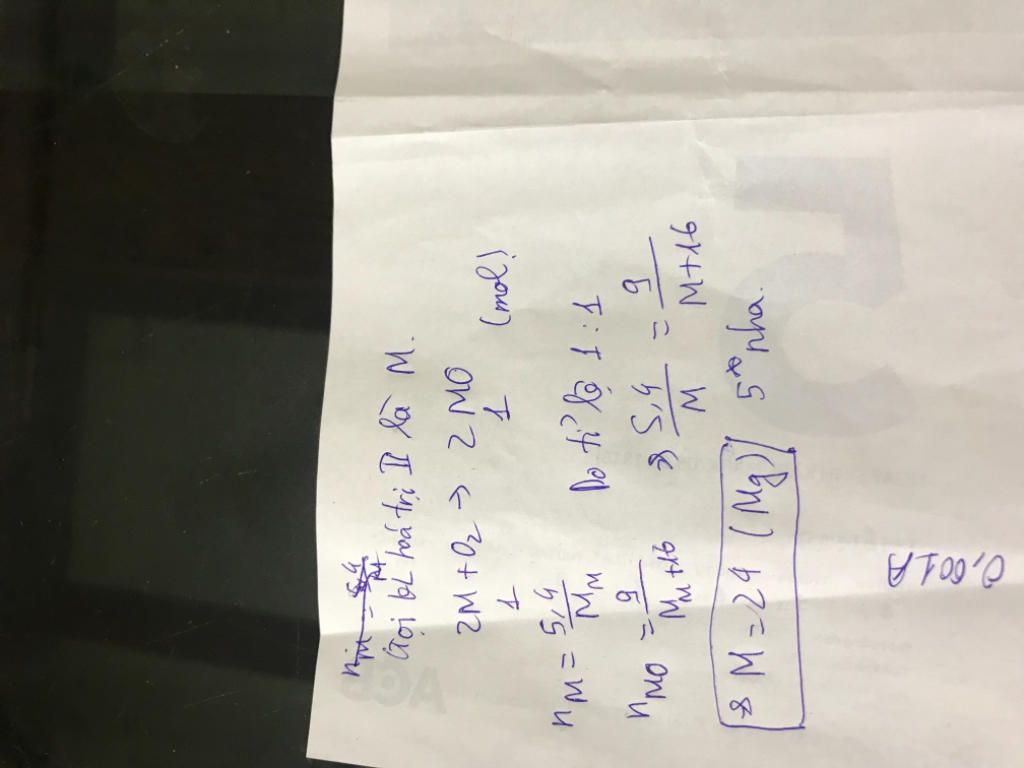 n_M = 5,4/M
Gọi kL hoá trị II là M.
2M + O₂ → 2MO
1 1 (mol)
n_M = 5,4/M_M Do tỉ lệ 1:1
n_MO = 9/M_M+16 => 5,4/M = 9/M+16
=> M = 24 (Mg) 5* nha.
0,001A
ACB